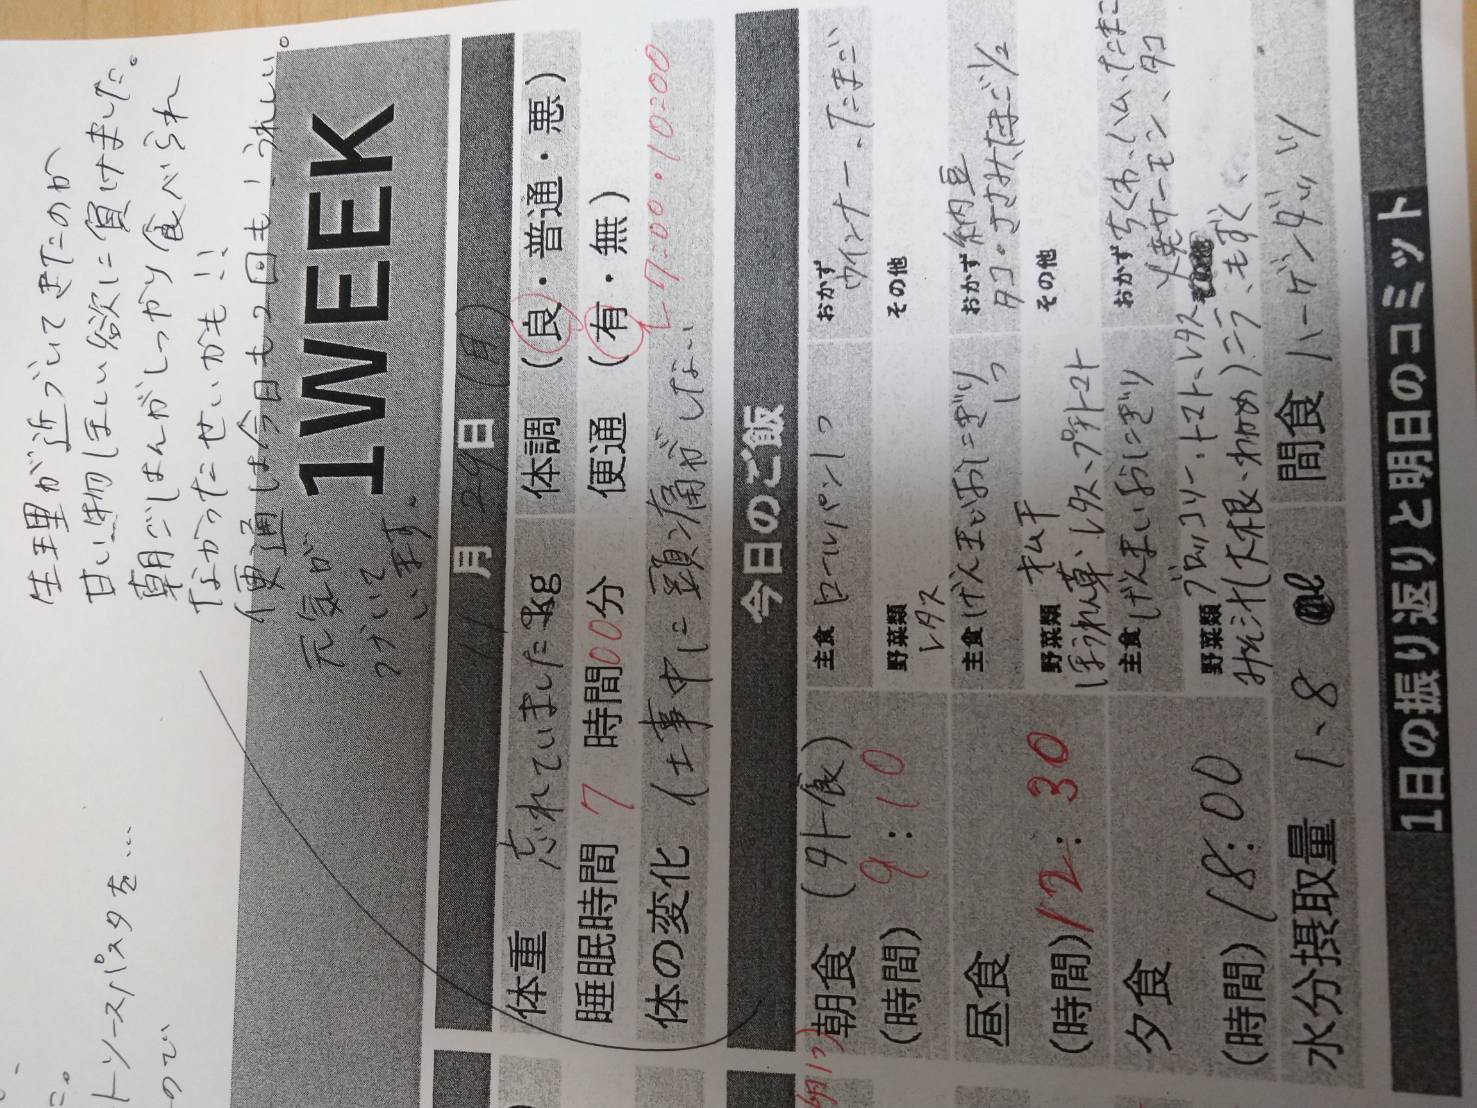 生理が近づいてきたのか
甘い物ほしい欲に負けました。
朝ごはんがしっかり食べられ
なかったせいかも!!
便通は今日も2回も!うれしい。
元気が
つづいて
います。
1WEEK
11月29日(月)
体重 忘れていました kg 体調 (良・普通・悪)
睡眠時間 7時間00分 便通 (有・無)
7:00・10:00
体の変化 仕事中に頭痛がしない
今日のご飯
朝食 (外食) 主食 ロールパン1つ おかず ウインナー、たまご
(時間) 9:10 野菜類 レタス その他
昼食 主食 げんまいおにぎり1つ おかず 納豆
タコ・ささみ、たまご1/2
(時間) 12:30 野菜類 キムチ その他
ほうれん草、レタス、プチトマト
夕食 主食 げんまいおにぎり おかず ちくわ、ハム、たまご
サーモン、タコ
(時間) 18:00 野菜類 ブロッコリー、トマト、レタス
みそ汁(大根、わかめ)ニラ、もずく、
水分摂取量 1.8 ℓ 間食 ハーゲンダッツ
1日の振り返りと明日のコミット
トソースパスタを…
ので